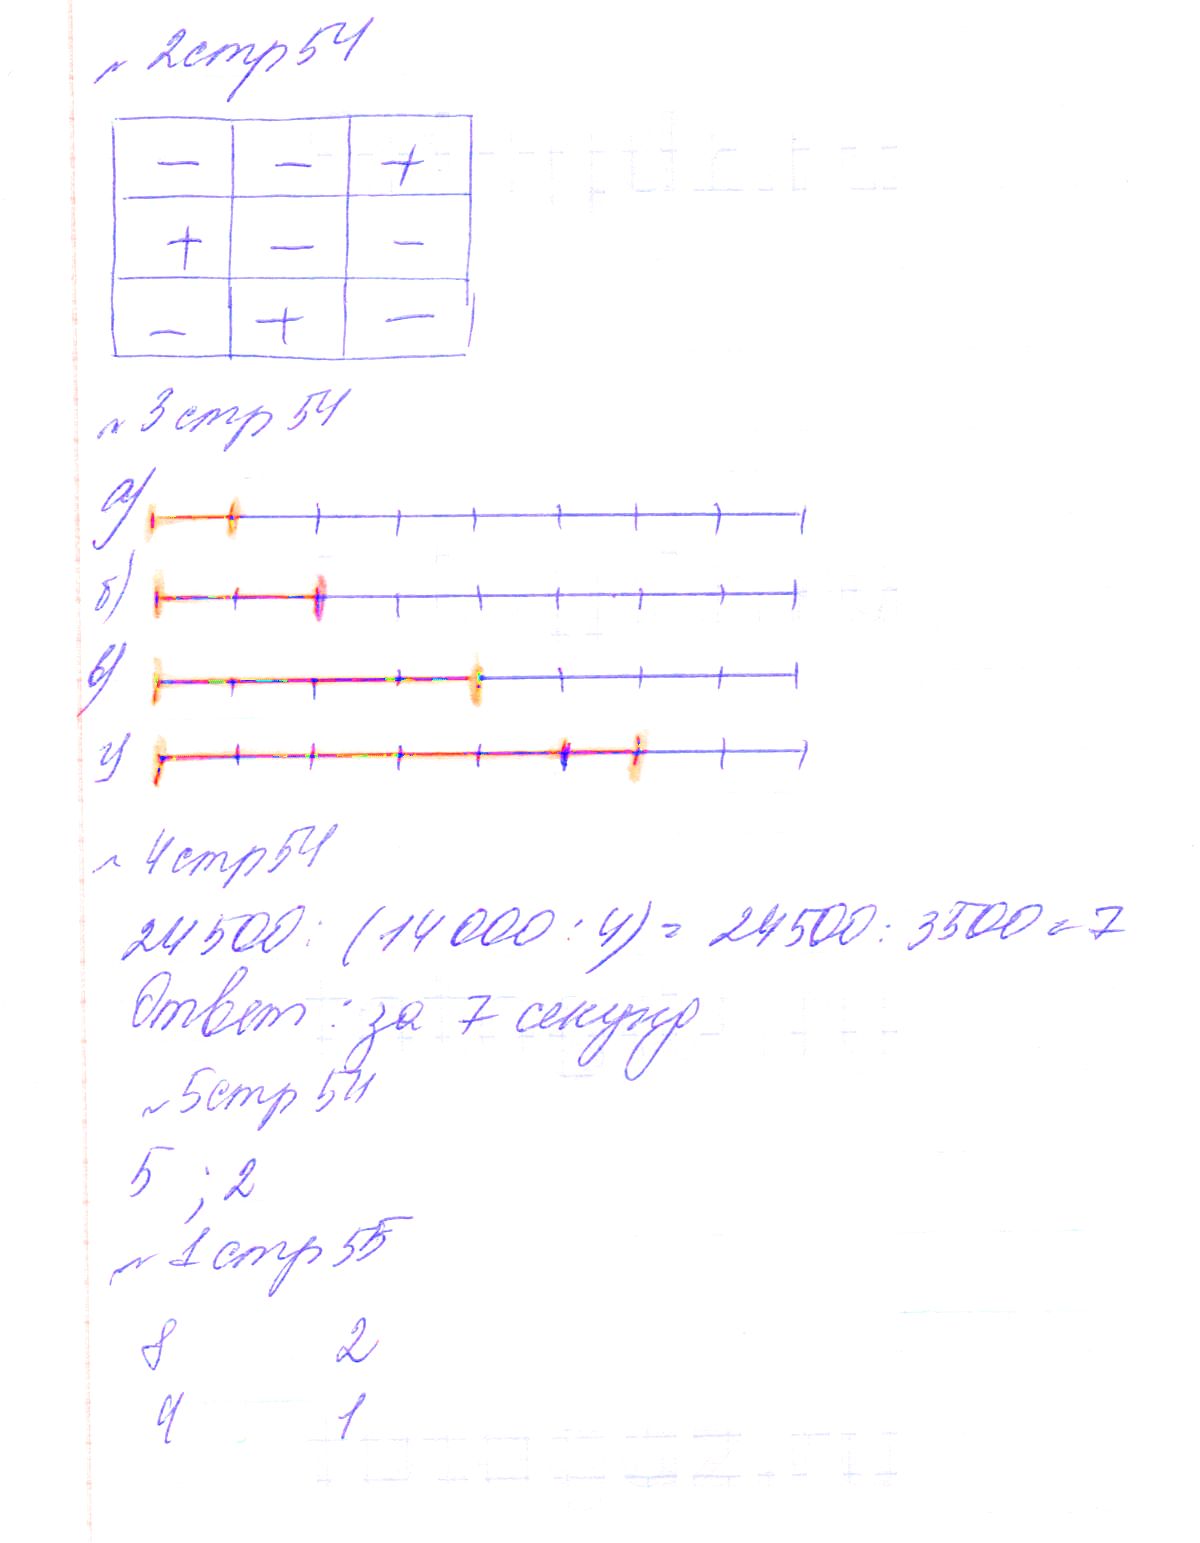 № 2 стр 54
− − +
+ − −
− + −
№ 3 стр 54
а)
б)
в)
г)
№ 4 стр 54
24500 : (14000 : 4) = 24500 : 3500 = 7
Ответ : за 7 секунд
№ 5 стр 54
5 ; 2
№ 1 стр 55
8 2
4 1